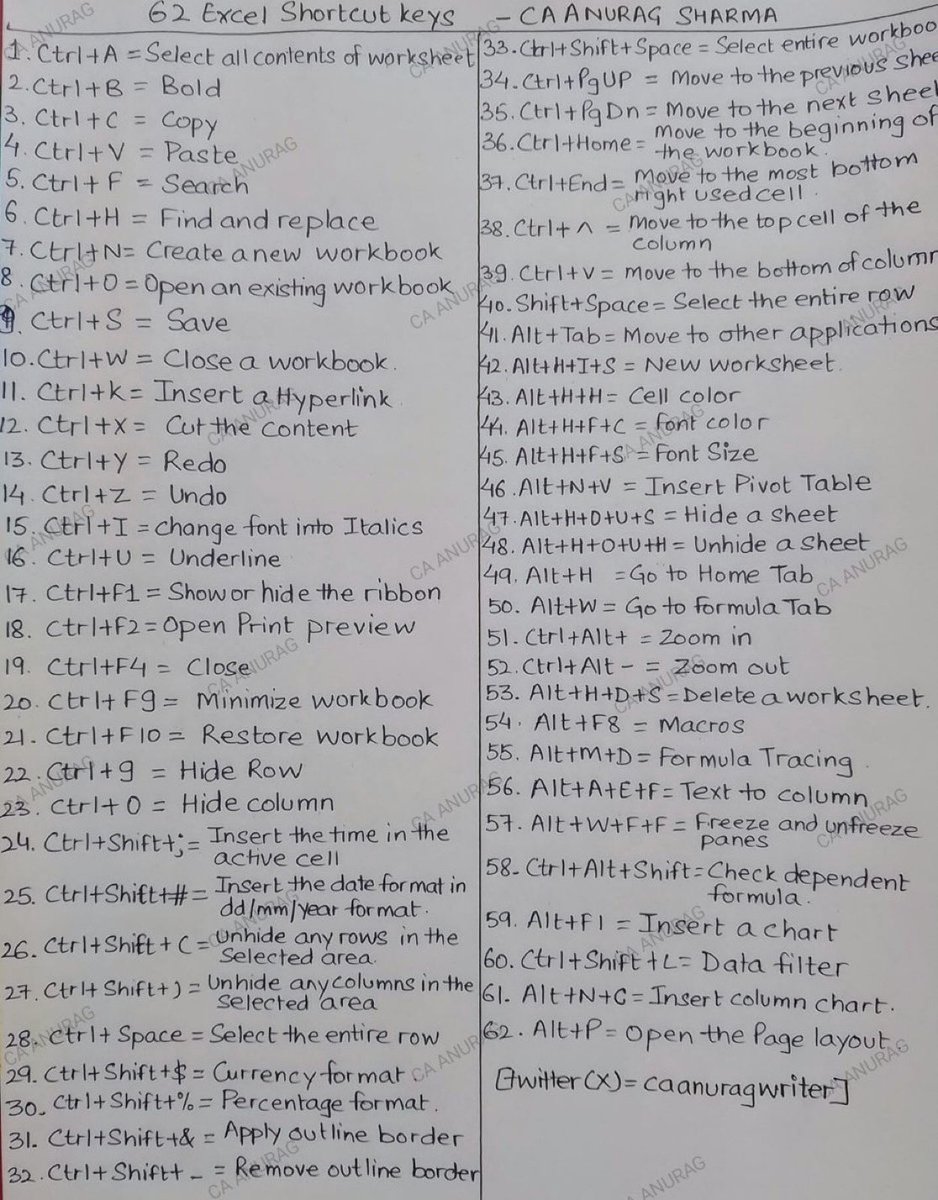 62 Excel Shortcut keys - CA ANURAG SHARMA
1. Ctrl+A = Select all contents of worksheet
2. Ctrl+B = Bold
3. Ctrl+C = Copy
4. Ctrl+V = Paste
5. Ctrl+F = Search
6. Ctrl+H = Find and replace
7. Ctrl+N = Create a new workbook
8. Ctrl+O = Open an existing workbook
9. Ctrl+S = Save
10. Ctrl+W = Close a workbook.
11. Ctrl+k = Insert a Hyperlink
12. Ctrl+X = Cut the content
13. Ctrl+Y = Redo
14. Ctrl+Z = Undo
15. Ctrl+I = change font into Italics
16. Ctrl+U = Underline
17. Ctrl+F1 = Show or hide the ribbon
18. Ctrl+F2 = Open Print preview
19. Ctrl+F4 = Close
20. Ctrl+F9 = Minimize workbook
21. Ctrl+F10 = Restore workbook
22. Ctrl+9 = Hide Row
23. Ctrl+0 = Hide column
24. Ctrl+Shift+; = Insert the time in the
active cell
25. Ctrl+Shift+# = Insert the date format in
dd/mm/year format.
26. Ctrl+Shift+( = Unhide any rows in the
Selected area.
27. Ctrl+Shift+) = Unhide any columns in the
Selected area
28. Ctrl+Space = Select the entire row
29. Ctrl+Shift+$ = Currency format
30. Ctrl+Shift+% = Percentage format.
31. Ctrl+Shift+& = Apply outline border
32. Ctrl+Shift+_ = Remove outline border
33. Ctrl+Shift+Space = Select entire workboo
34. Ctrl+PgUP = Move to the previous shee
35. Ctrl+PgDn = Move to the next sheet
36. Ctrl+Home = Move to the beginning of
the workbook.
37. Ctrl+End = Move to the most bottom
right used cell.
38. Ctrl+^ = Move to the top cell of the
column
39. Ctrl+v = move to the bottom of column
40. Shift+Space = Select the entire row
41. Alt+Tab = Move to other applications
42. Alt+H+I+S = New worksheet.
43. Alt+H+H = Cell color
44. Alt+H+F+C = font color
45. Alt+H+F+S = Font Size
46. Alt+N+V = Insert Pivot Table
47. Alt+H+O+U+S = Hide a sheet
48. Alt+H+O+U+H = Unhide a Sheet
49. Alt+H = Go to Home Tab
50. Alt+W = Go to formula Tab
51. Ctrl+Alt+ = Zoom in
52. Ctrl+Alt - = Zoom out
53. Alt+H+D+S = Delete a worksheet.
54. Alt+F8 = Macros
55. Alt+M+D = Formula Tracing
56. Alt+A+E+F = Text to column
57. Alt+W+F+F = Freeze and unfreeze
panes
58. Ctrl+Alt+Shift = Check dependent
formula.
59. Alt+F1 = Insert a chart
60. Ctrl+Shift+L = Data filter
61. Alt+N+C = Insert column chart.
62. Alt+P = Open the Page layout
[Twitter(X) = caanuragwriter]